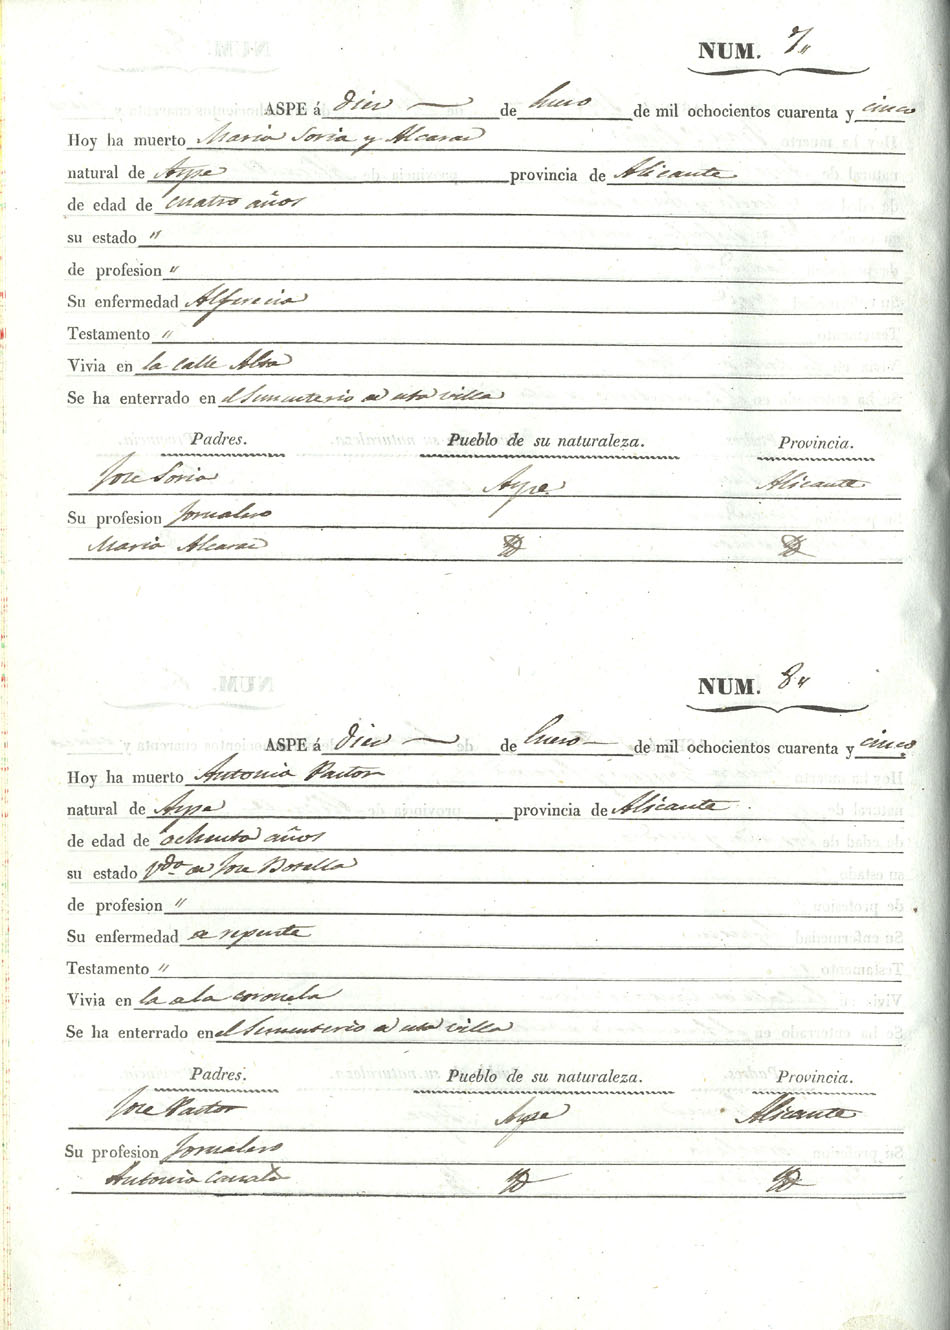 NUM. 7"
ASPE á diez de Enero de mil ochocientos cuarenta y cinco
Hoy ha muerto Maria Soria y Alcaraz
natural de Aspe provincia de Alicante
de edad de cuatro años
su estado "
de profesion "
Su enfermedad Alferecia
Testamento "
Vivia en la calle Alta
Se ha enterrado en el Sementerio de esta villa
Padres. Pueblo de su naturaleza. Provincia.
Jose Soria Aspe Alicante
Su profesion Jornalero
Maria Alcaraz
NUM. 8"
ASPE á diez de Enero de mil ochocientos cuarenta y cinco
Hoy ha muerto Antonia Pastor
natural de Aspe provincia de Alicante
de edad de ochenta años
su estado Vda. de Jose Botella
de profesion "
Su enfermedad de repente
Testamento "
Vivia en la de la coronela
Se ha enterrado en el Sementerio de esta villa
Padres. Pueblo de su naturaleza. Provincia.
Jose Pastor Aspe Alicante
Su profesion Jornalero
Antonia